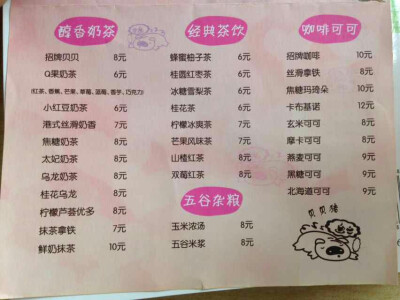 醇香奶茶
招牌贝贝 8元
Q果奶茶 6元
(红茶、香橙、芒果、草莓、蓝莓、香芋、巧克力)
小红豆奶茶 6元
港式丝滑奶香 7元
焦糖奶茶 8元
太妃奶茶 8元
乌龙奶茶 8元
桂花乌龙 8元
柠檬芦荟优多 8元
抹茶拿铁 7元
鲜奶抹茶 10元
经典茶饮
蜂蜜柚子茶 6元
桂圆红枣茶 6元
冰糖雪梨茶 6元
桂花茶 6元
柠檬冰爽茶 7元
芒果风味茶 7元
山楂红茶 8元
双莓红茶 8元
五谷杂粮
玉米浓汤 8元
五谷米浆 8元
咖啡可可
招牌咖啡 10元
丝滑拿铁 8元
焦糖玛琦朵 10元
卡布基诺 12元
玄米可可 8元
摩卡可可 8元
燕麦可可 9元
黑糖可可 9元
北海道可可 9元
贝贝猪